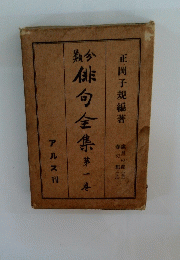 正岡子規編著
分類
俳句全集
第一巻
アルス刊